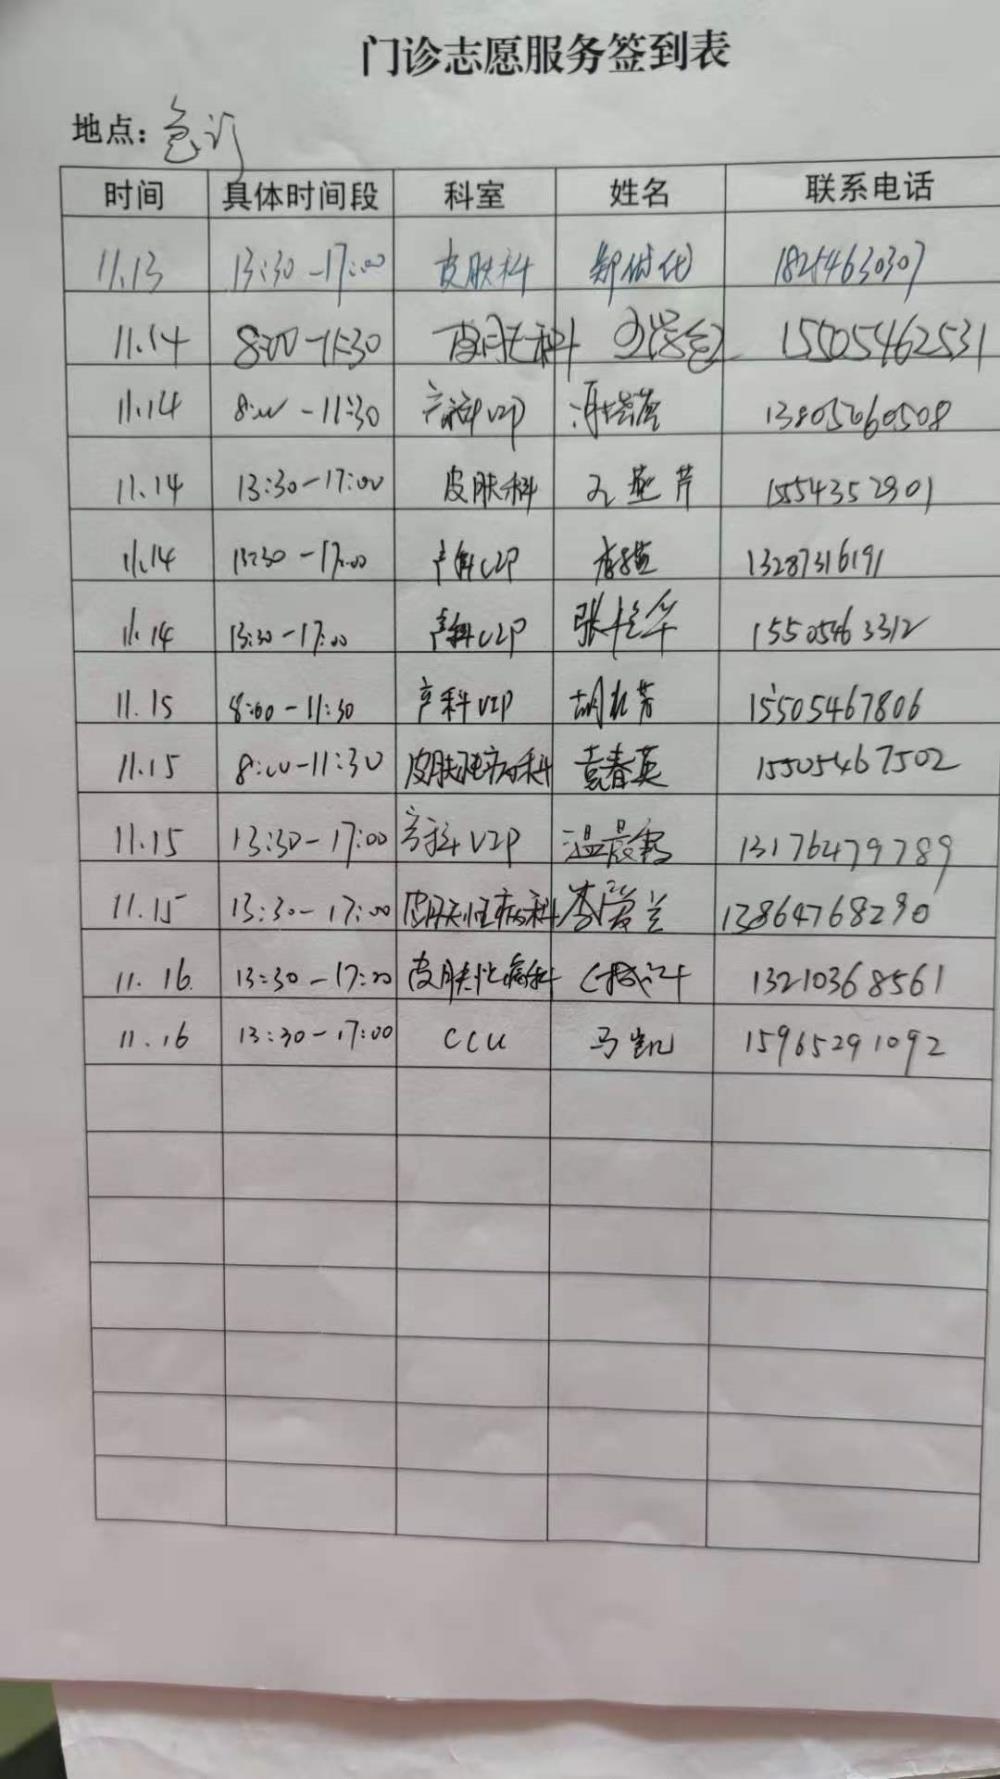 门诊志愿服务签到表
地点：急诊
时间 具体时间段 科室 姓名 联系电话
11.13 13:30-17:00 皮肤科 18254630307
11.14 8:00-11:30 皮肤科 15505462531
11.14 8:00-11:30 产科VIP 13805060508
11.14 13:30-17:00 皮肤科 孔燕芹 15554352901
11.14 13:30-17:00 产科VIP 13287316191
11.14 13:30-17:00 产科VIP 15505463312
11.15 8:00-11:30 产科VIP 15505467806
11.15 8:00-11:30 皮肤性病科 袁春英 15505467502
11.15 13:30-17:00 产科VIP 温晨雪 13176479789
11.15 13:30-17:00 皮肤性病科 李爱兰 13864768290
11.16 13:30-17:00 皮肤性病科 13210368561
11.16 13:30-17:00 CCU 马凯 15965291092